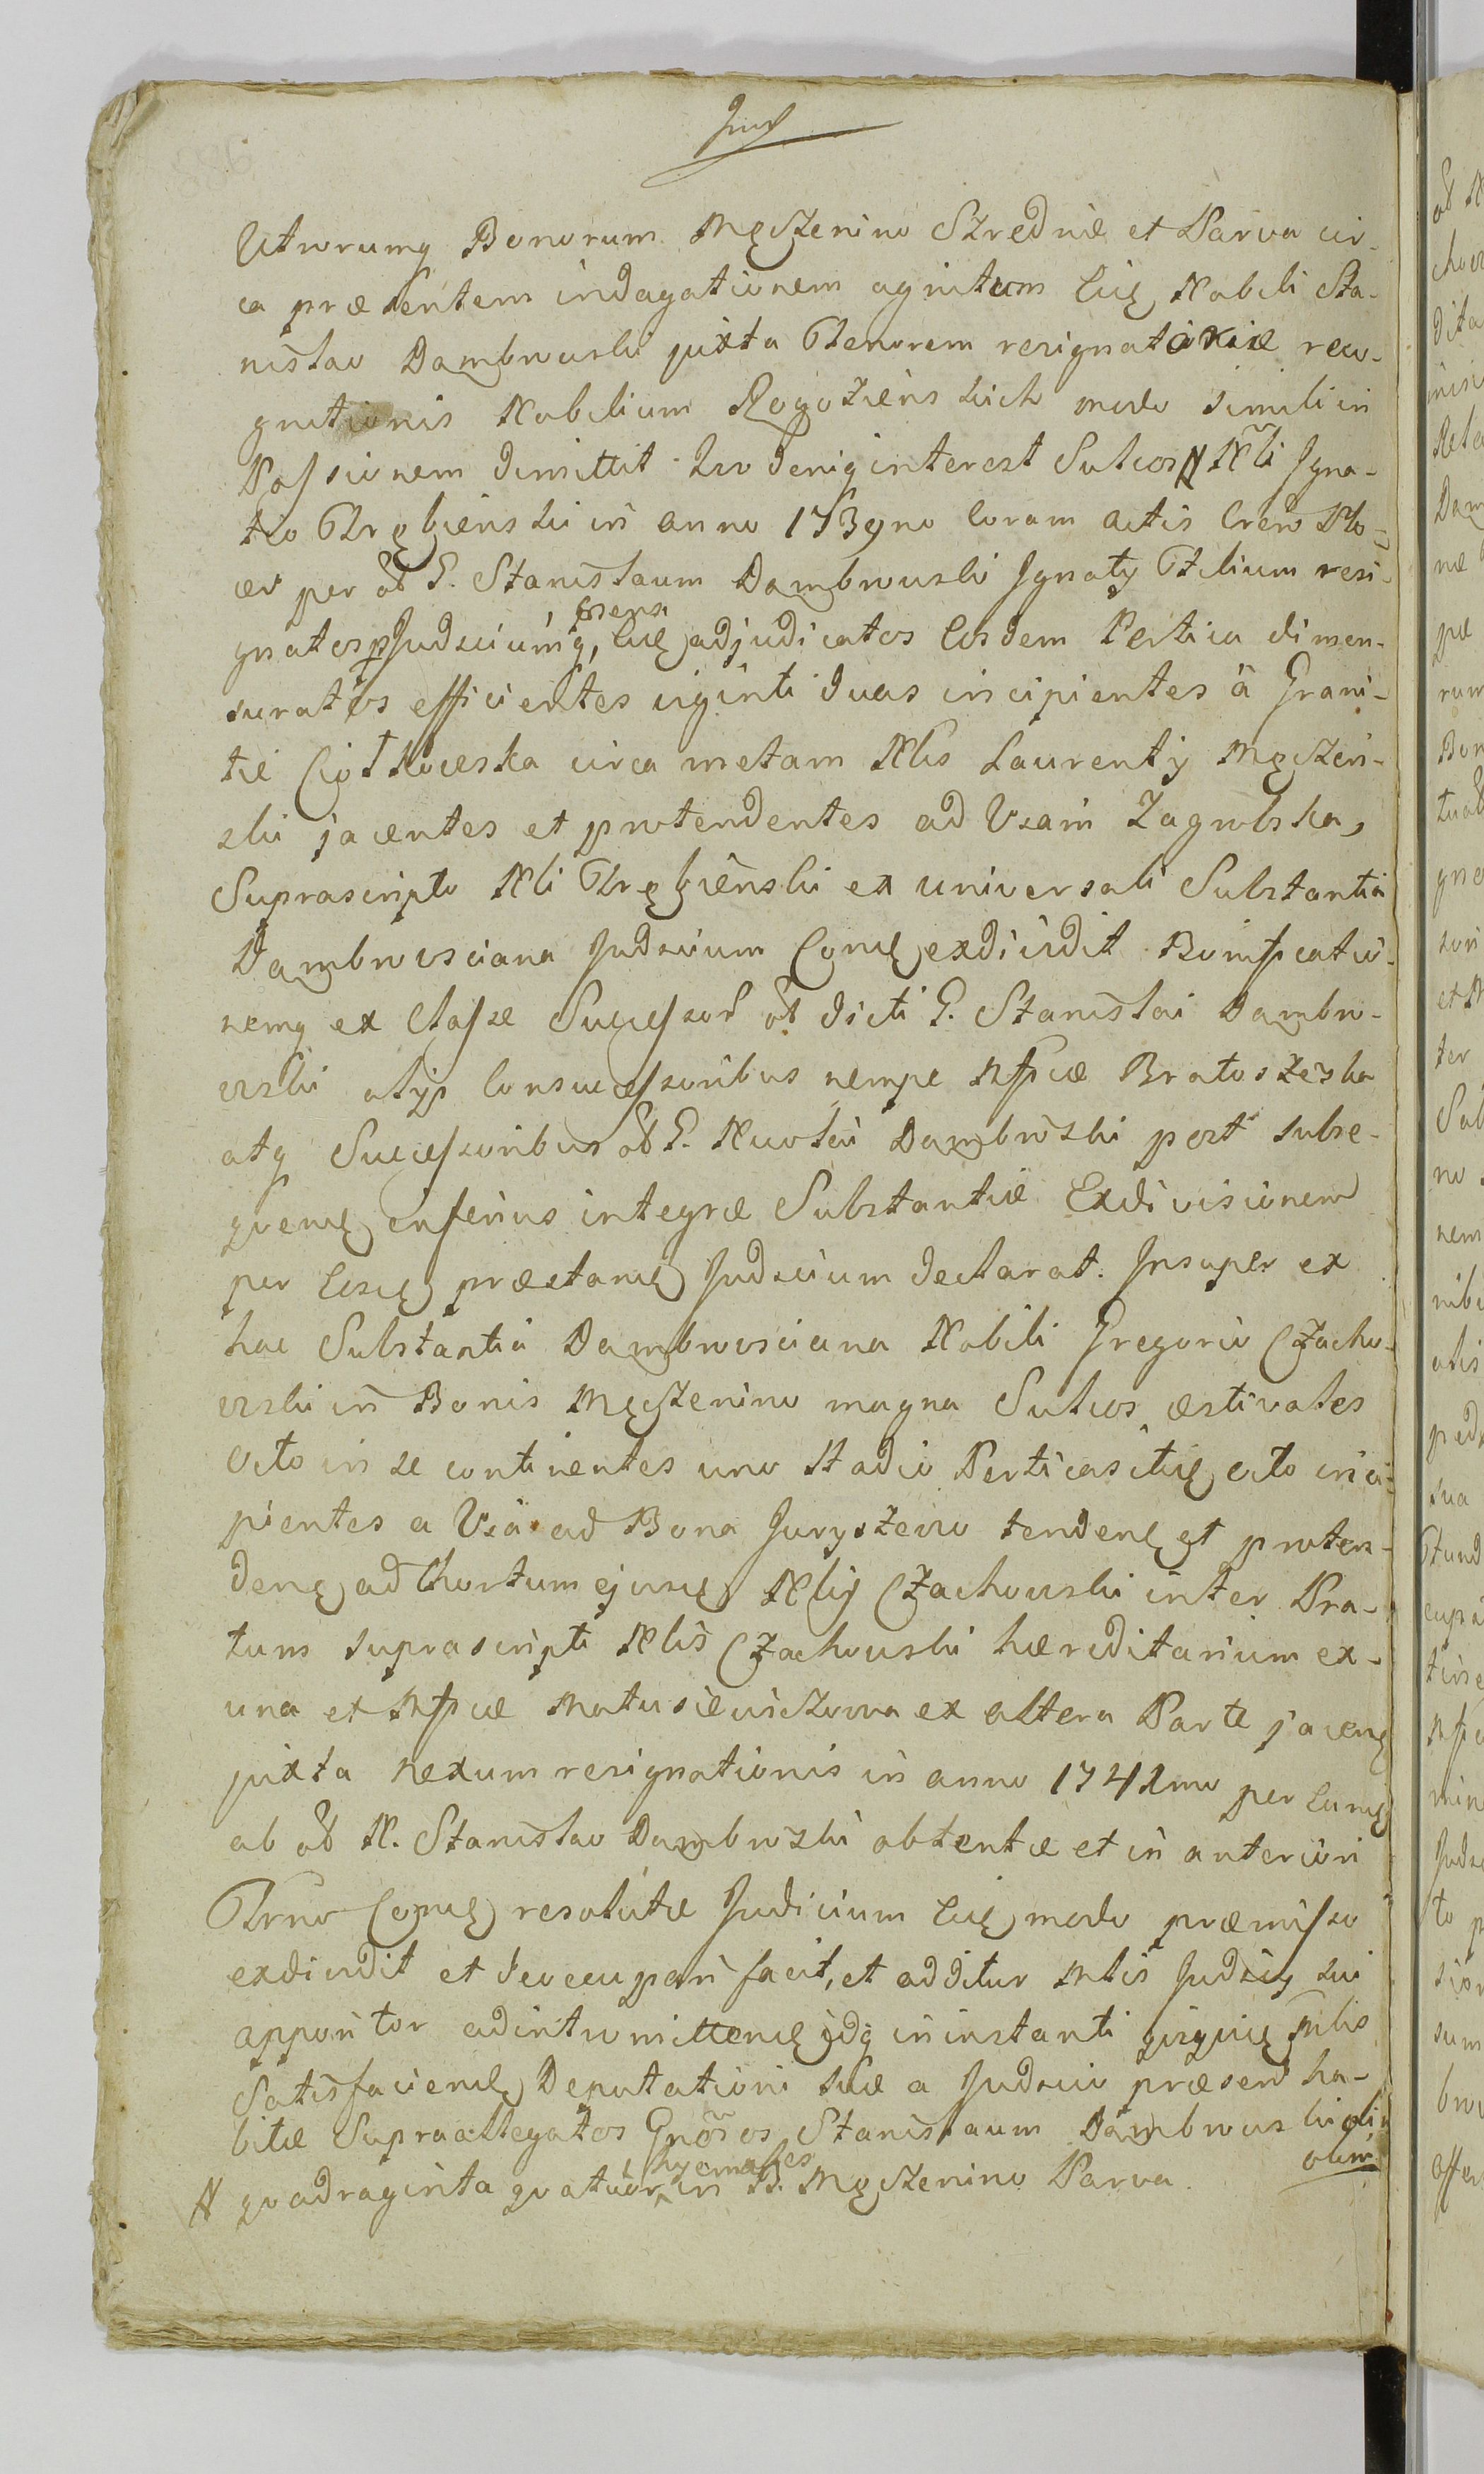 Utrorumq Bonorum Męczenino Szrednie et Parva cir-
ca præsentem indagationem agnitum Eid Nobili Sta-
nislao Dambrowski juxta Thenorem resignatoriæ reco-
gnitionis Nobilium Rogozienskich modo simili in
Possionem dimittit Quo deniq interest Sulcos # Nli Igna-
tio Trębienski in anno 1739no coram actis Cren Plo-
cen per od G. Stanislaum Dambrowski Ignaty Filium resi-
gnatos p Judicium q, præsens Eid adjudicatos Eosdem Pertica dimen-
suratos efficientes viginti duas incipientes à Grani-
tie Ciołkowska circa metam Nlis Laurenty Męczen-
ski jacentes et protendentes ad Viam Zagrobska,
Suprascripto Nli Trębienski ex universali Substantia
Dambrowsciana Judicium Comd exdividit Bonificatio-
nemq ex Classe Successor od dicti G. Stanislai Dambro-
wski alijs Consuccessoribus nempe Mfcæ Bratoszeska
atq Successoribus od G. Nicolai Dambrowski post subse-
quend inferius integræ Substantiæ Exdivisionem
per Eosd præstand Judicium declarat. Insuper ex
hac Substantia Dambrowsciana Nobili Gregorio Czacho-
wski in Bonis Męczenino magna Sulcos æstivales
octo in se continentes uno Stadio Perticas itid octo inci-
pientes a Via ad Bona Juryszewo tendend et proten-
dend ad Chortum ejusd Nlis Czachowski inter Pra-
tum suprascripti Nlis Czachowski hæreditarium ex-
una et Mfcæ Matusiewiczowa ex altera Parte jacend
juxta nexum resignationis in anno 1742mo per Eund
ab od N. Stanislao Dambrowski obtentæ et in anteriori
Trno Comd resolutæ Judicium Eid modo præmisso
exdividit et deoccupari facit, et additur Mlis Judicij sui
apparitor ad intromittend idq in instanti quiquid Mlis
Satisfaciend Deputationi suæ a Judicio præsen ha-
bitæ Supraallegatos Gnosos Stanislaum Dambrowski
olim
# quadraginta quatuor hyemales in B. Męczenino Parva.